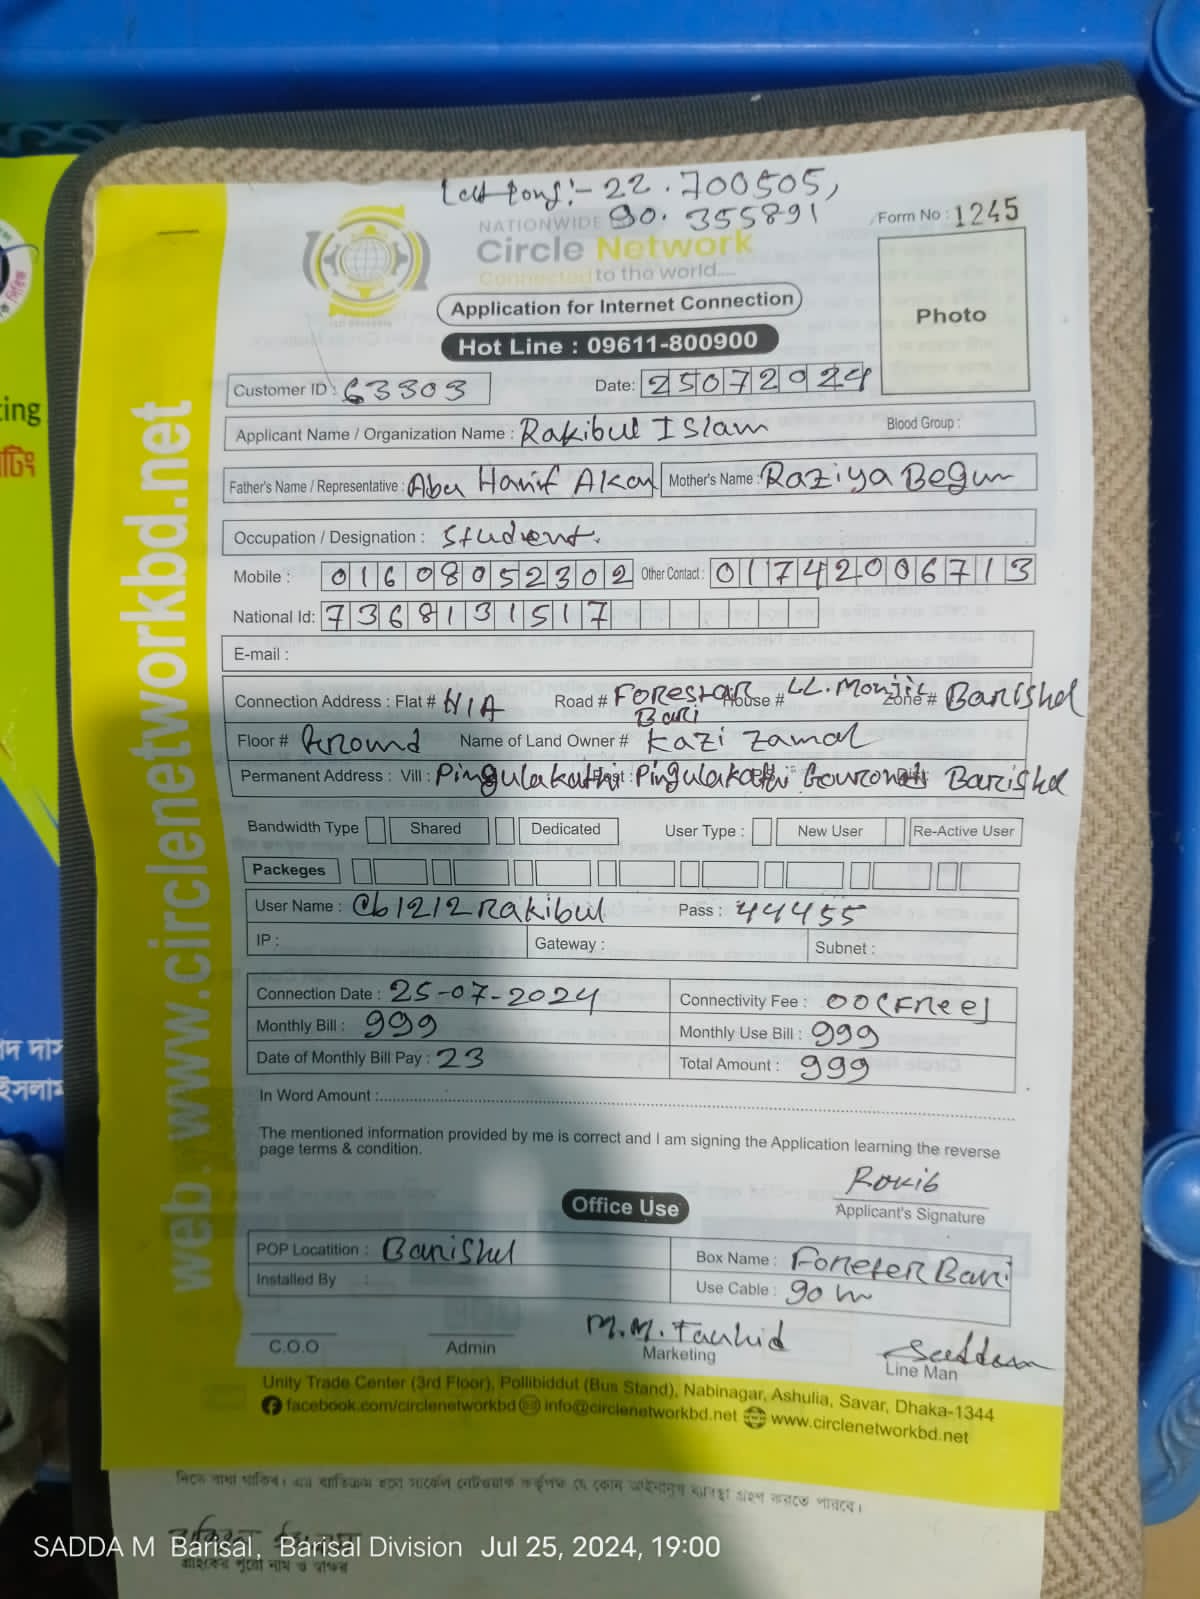 Latt Long:- 22.700505,
90.355891
NATIONWIDE
Form No : 1245
Circle Network
Connected to the world....
Application for Internet Connection
Photo
Hot Line : 09611-800900
Customer ID : 63303 Date: 25072024
Applicant Name / Organization Name : Rakibul Islam Blood Group :
Father's Name / Representative : Abu Hanif Akon Mother's Name : Raziya Begum
Occupation / Designation : Student.
Mobile : 01608052302 Other Contact : 01742006713
National Id: 7368131517
E-mail :
Connection Address : Flat # N/A Road # Forestar Bari House # LL. Monjil Zone # Barishal
Floor # Ground Name of Land Owner # Kazi Zamal
Permanent Address : Vill : Pingulakathi Post : Pingulakathi Gouronadi Barishal
Bandwidth Type Shared Dedicated User Type : New User Re-Active User
Packeges
User Name : Cb1212Rakibul Pass : 44455
IP : Gateway : Subnet :
Connection Date : 25-07-2024 Connectivity Fee : 00(Free)
Monthly Bill : 999 Monthly Use Bill : 999
Date of Monthly Bill Pay : 23 Total Amount : 999
In Word Amount :
The mentioned information provided by me is correct and I am signing the Application learning the reverse
page terms & condition.
Rakib
Applicant's Signature
Office Use
POP Locatition : Barishal Box Name : Forester Bari
Installed By : Use Cable : 90 m
M.M. Tauhid Saddam
C.O.O Admin Marketing Line Man
Unity Trade Center (3rd Floor), Pollibiddut (Bus Stand), Nabinagar, Ashulia, Savar, Dhaka-1344
facebook.com/circlenetworkbd info@circlenetworkbd.net www.circlenetworkbd.net
web.www.circlenetworkbd.net
গ্রাহকের পুরো নাম ও স্বাক্ষর
SADDA M Barisal, Barisal Division Jul 25, 2024, 19:00